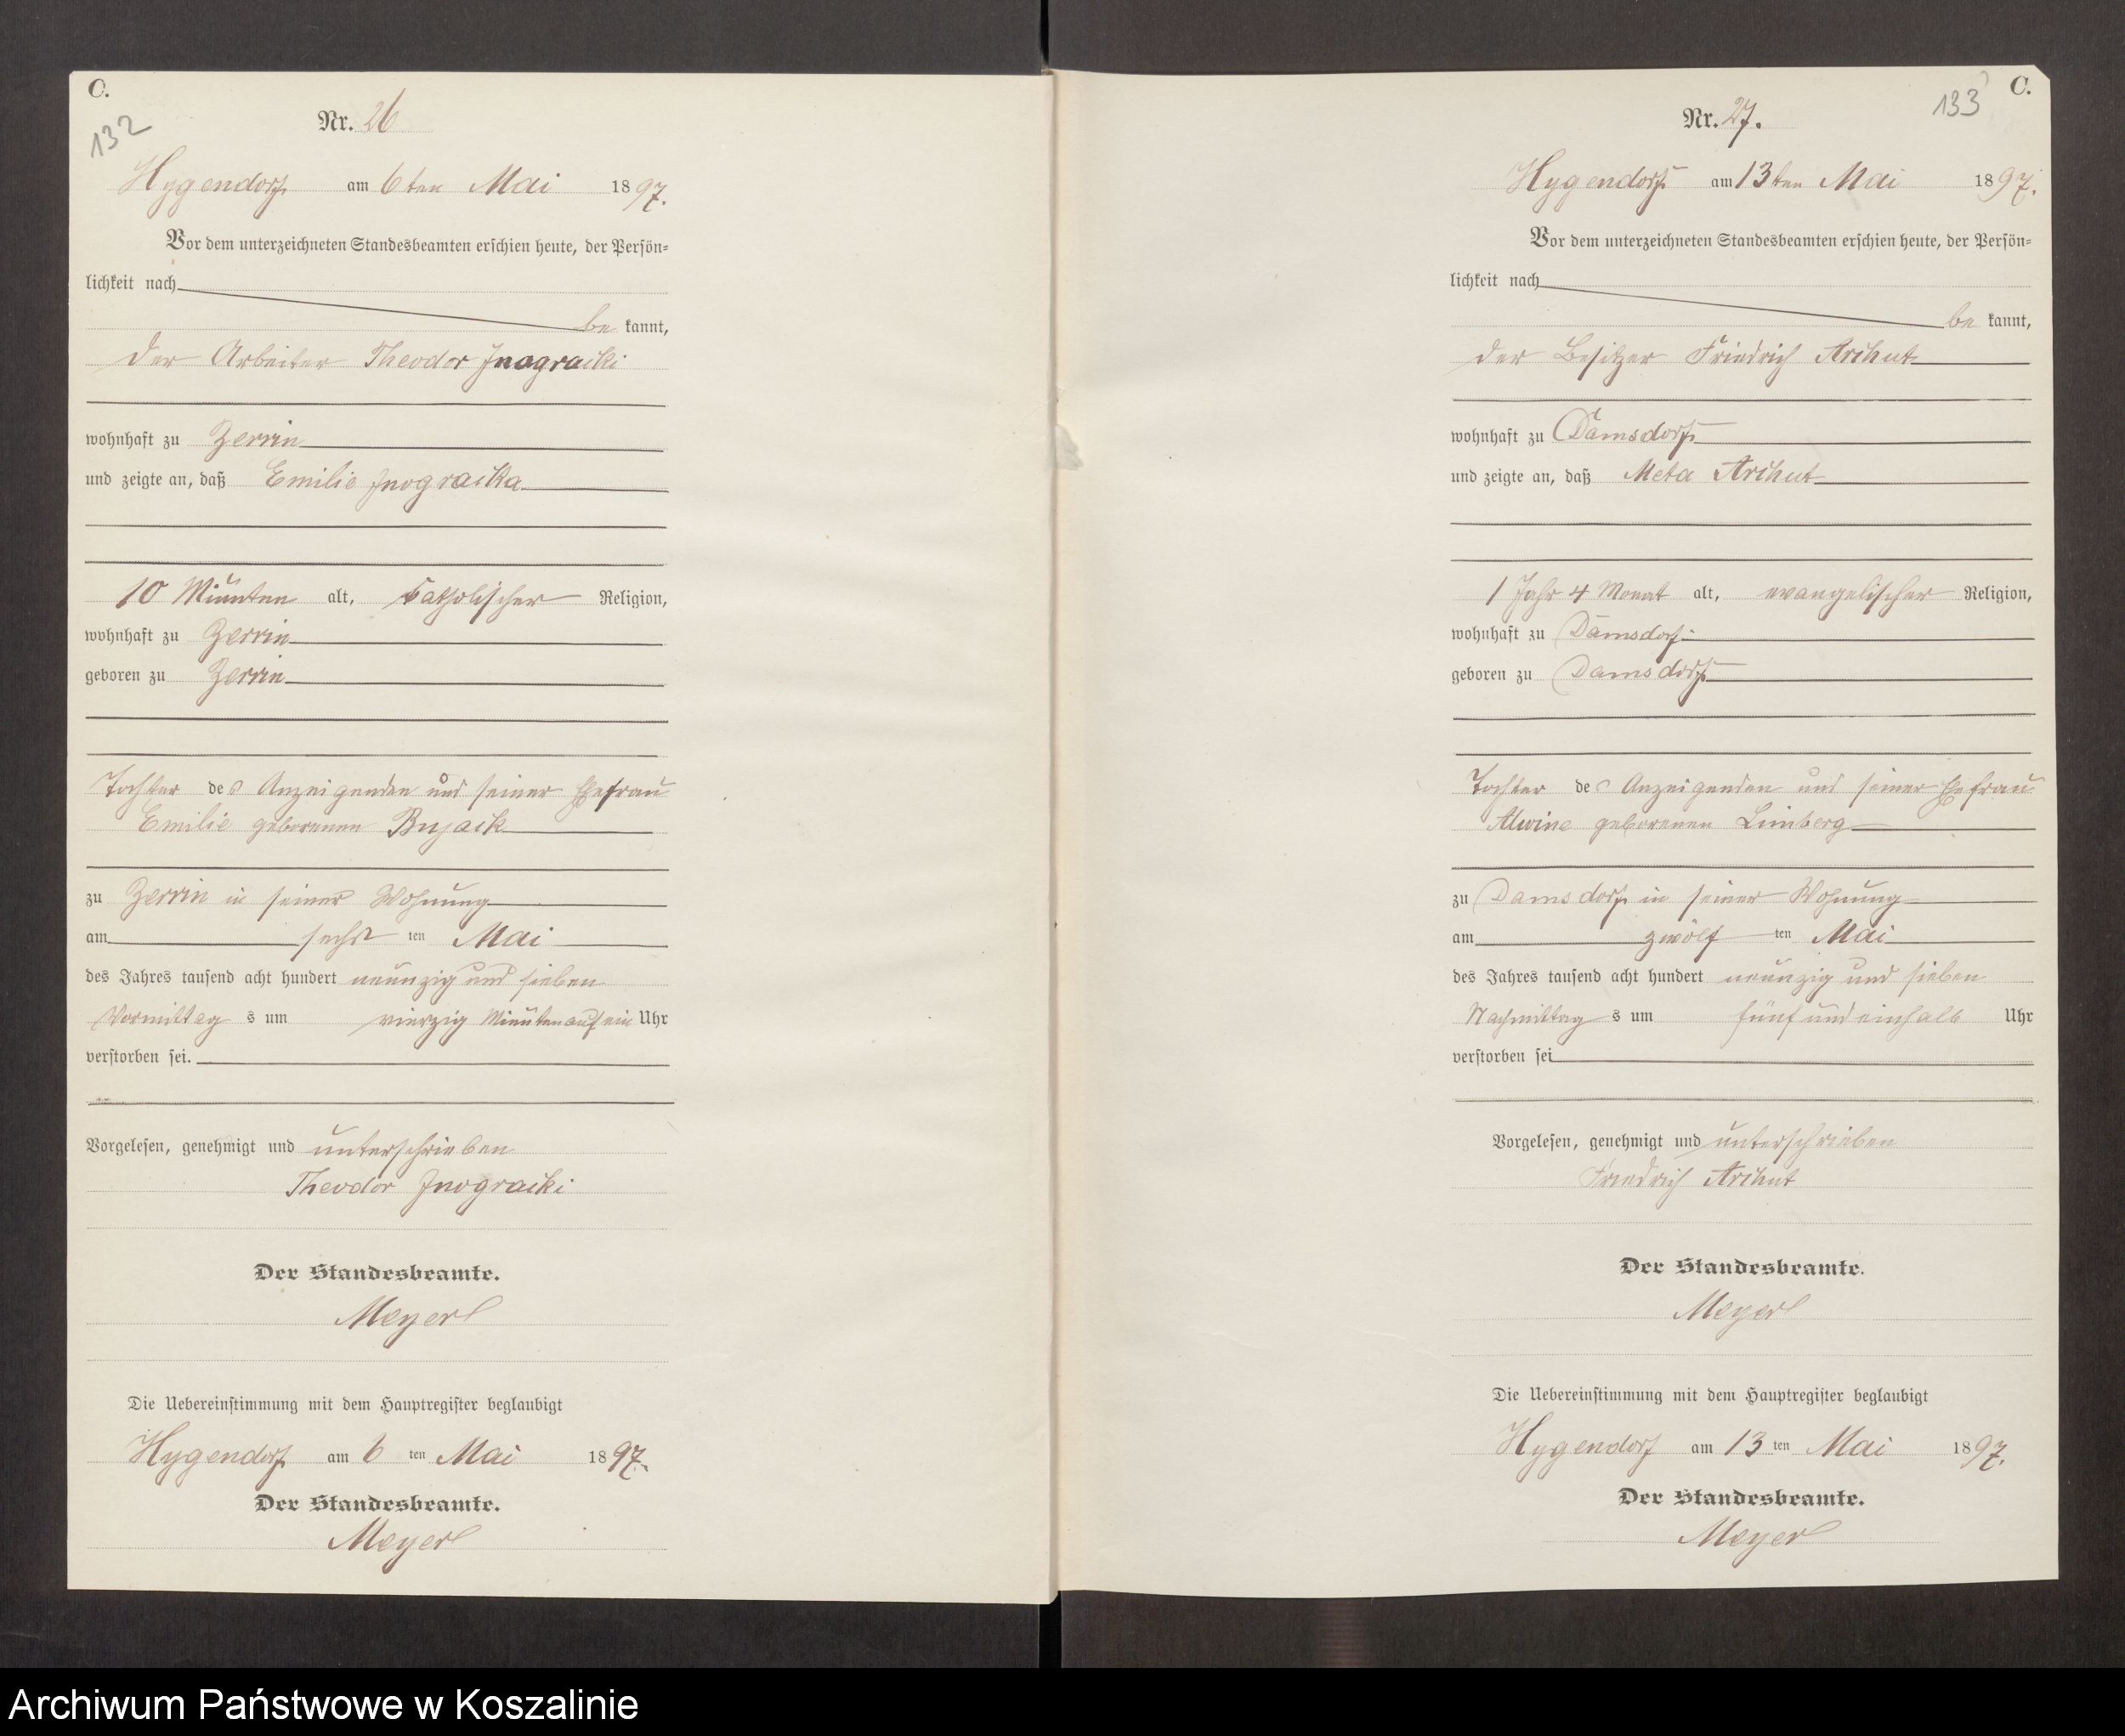 C.
132
Nr. 26
Hygendorf am 6ten Mai 1897.
Vor dem unterzeichneten Standesbeamten erschien heute, der Persön=
lichkeit nach
be kannt,
der Arbeiter Theodor Jnograiki
wohnhaft zu Zerrin
und zeigte an, daß Emilie Jnograika
10 Minuten alt, katholischer Religion,
wohnhaft zu Zerrin
geboren zu Zerrin
Tochter des Anzeigenden und seiner Ehefrau
Emilie geborenen Bujack
zu Zerrin in seiner Wohnung
am sechs ten Mai
des Jahres tausend acht hundert neunzig und sieben
Vormittag s um vierzig Minuten auf ein Uhr
verstorben sei.
Vorgelesen, genehmigt und unterschrieben
Theodor Jnograiki
Der Standesbeamte.
Meyer
Die Uebereinstimmung mit dem Hauptregister beglaubigt
Hygendorf am 6 ten Mai 1897.
Der Standesbeamte.
Meyer
133
C.
Nr. 27.
Hygendorf am 13ten Mai 1897.
Vor dem unterzeichneten Standesbeamten erschien heute, der Persön=
lichkeit nach
be kannt,
der Besitzer Friedrich Arihut
wohnhaft zu Damsdorf
und zeigte an, daß Meta Arihut
1 Jahr 4 Monat alt, evangelischer Religion,
wohnhaft zu Damsdorf
geboren zu Damsdorf
Tochter des Anzeigenden und seiner Ehefrau
Alwine geborenen Limberg
zu Damsdorf in seiner Wohnung
am zwölf ten Mai
des Jahres tausend acht hundert neunzig und sieben
Nachmittag s um fünf und einhalb Uhr
verstorben sei
Vorgelesen, genehmigt und unterschrieben
Friedrich Arihut
Der Standesbeamte.
Meyer
Die Uebereinstimmung mit dem Hauptregister beglaubigt
Hygendorf am 13 ten Mai 1897.
Der Standesbeamte.
Meyer
Archiwum Państwowe w Koszalinie